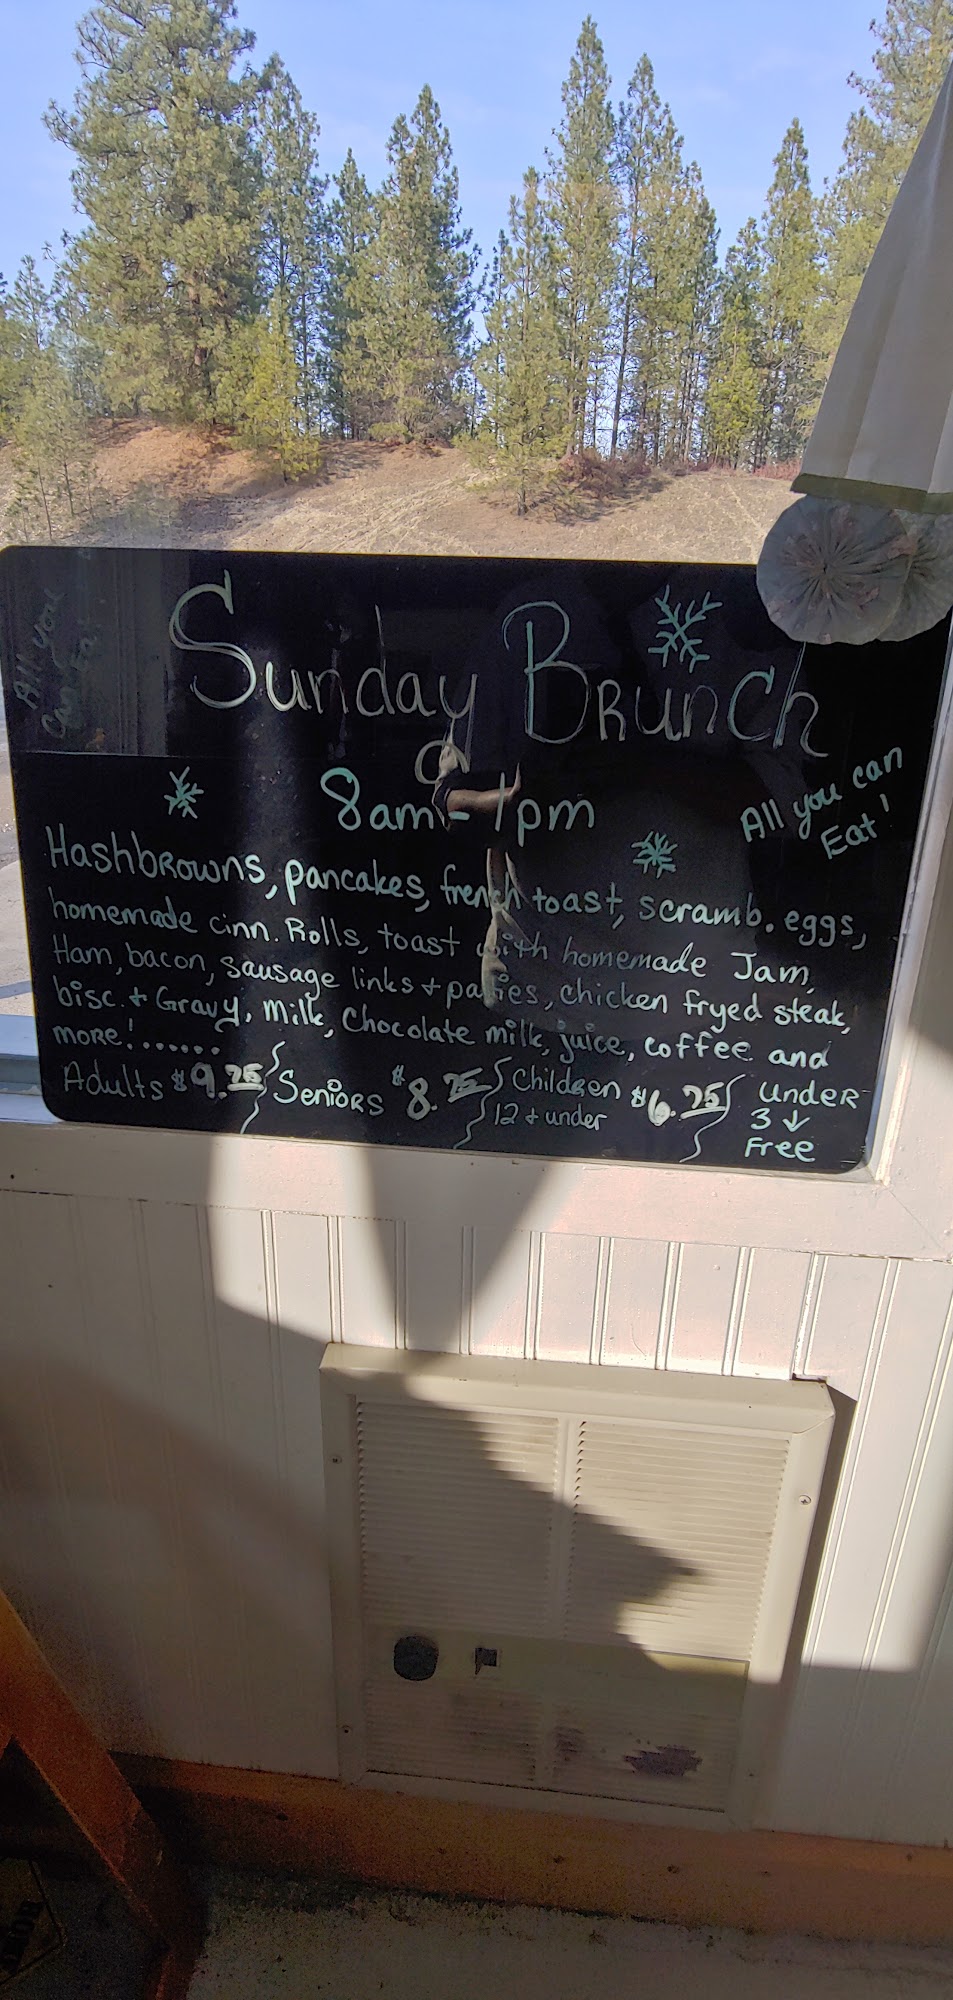 Sunday Brunch
8am - 1pm
All you can
Eat!
Hashbrowns, pancakes, french toast, scramb. eggs,
homemade cinn. Rolls, toast with homemade Jam,
Ham, bacon, sausage links + patties, chicken fryed steak,
bisc. + Gravy, Milk, Chocolate milk, juice, coffee and
more!......
Adults $9.25 Seniors $8.25 Children $6.25 Under
12 + under 3 ↓
Free
All you
Can Eat